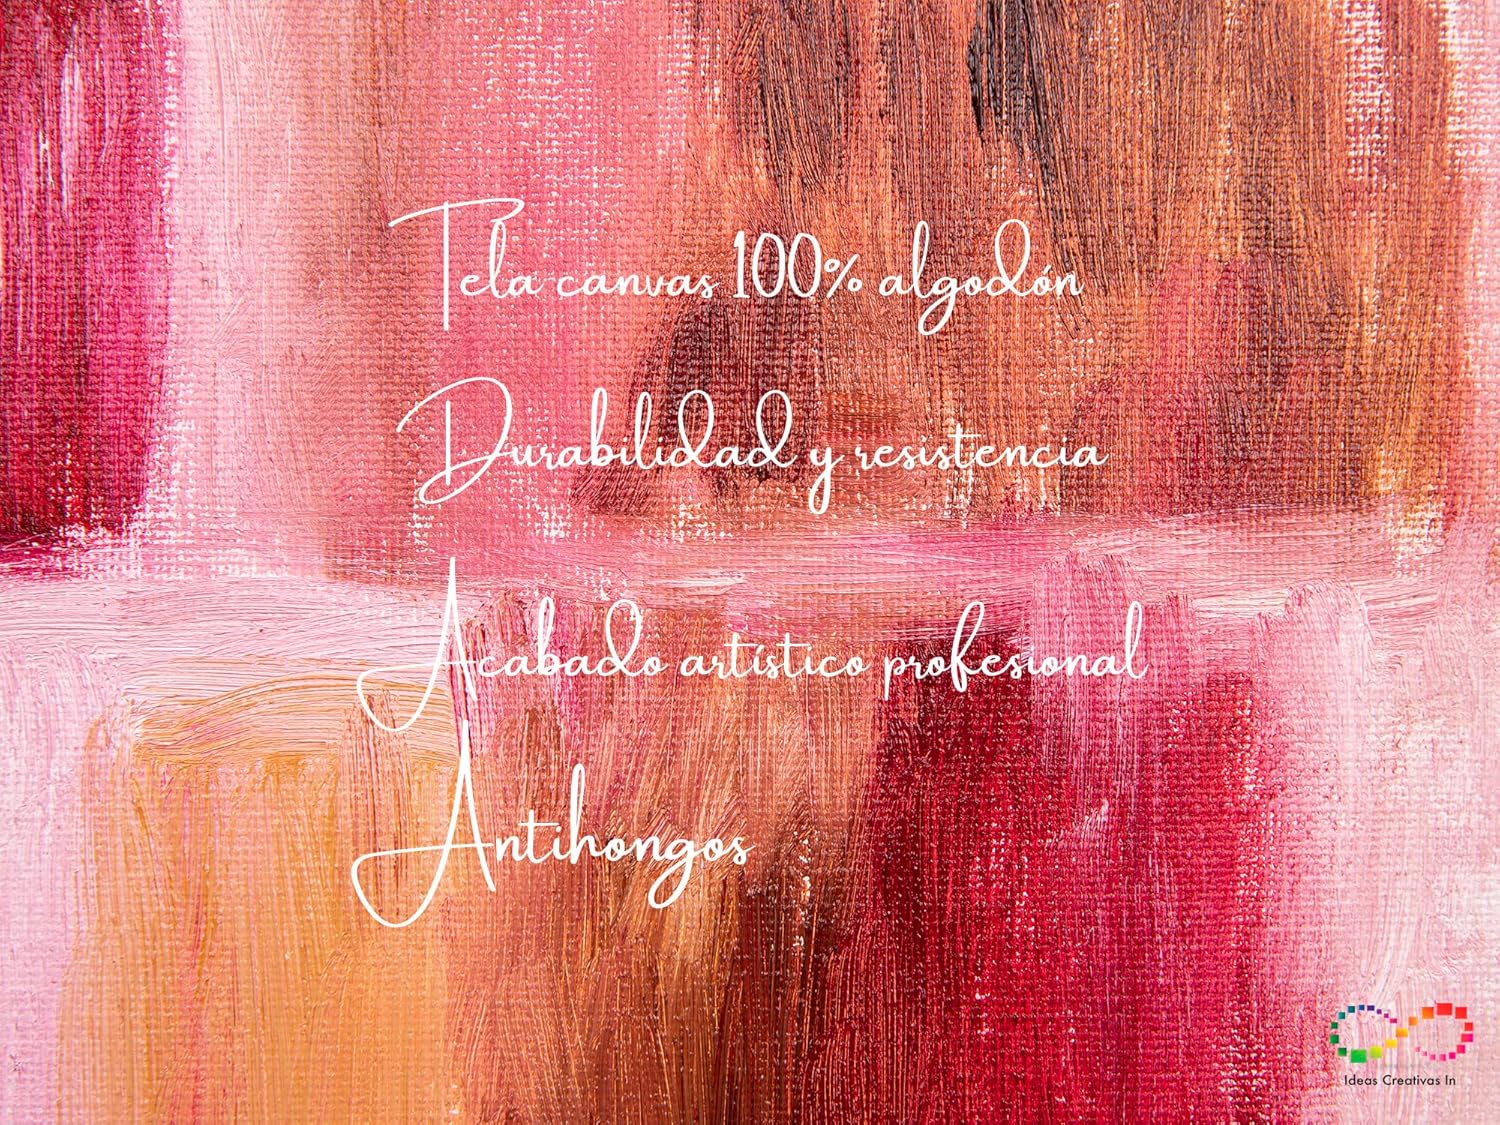 Tela canvas 100% algodón
Durabilidad y resistencia
Acabado artístico profesional
Antihongos
Ideas Creativas In